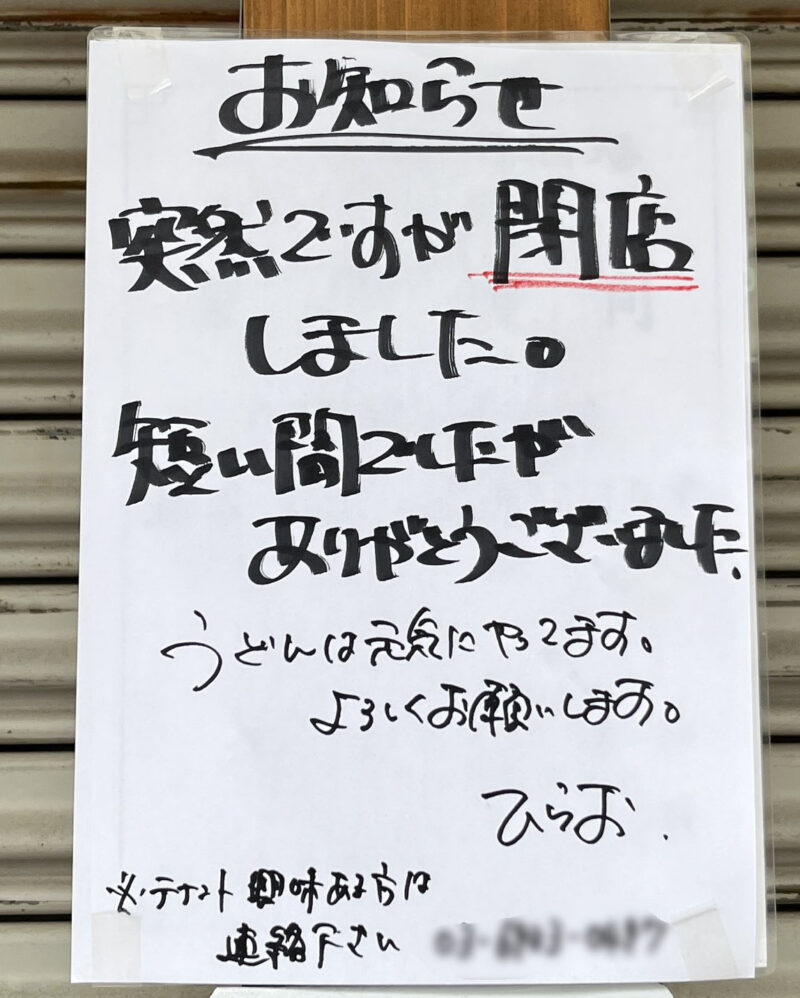 お知らせ
突然ですが閉店
しました。
短い間でしたが
ありがとうございました.
うどんは元気にやってます。
よろしくお願いします。
ひらお.
※テナント興味ある方は
連絡下さい